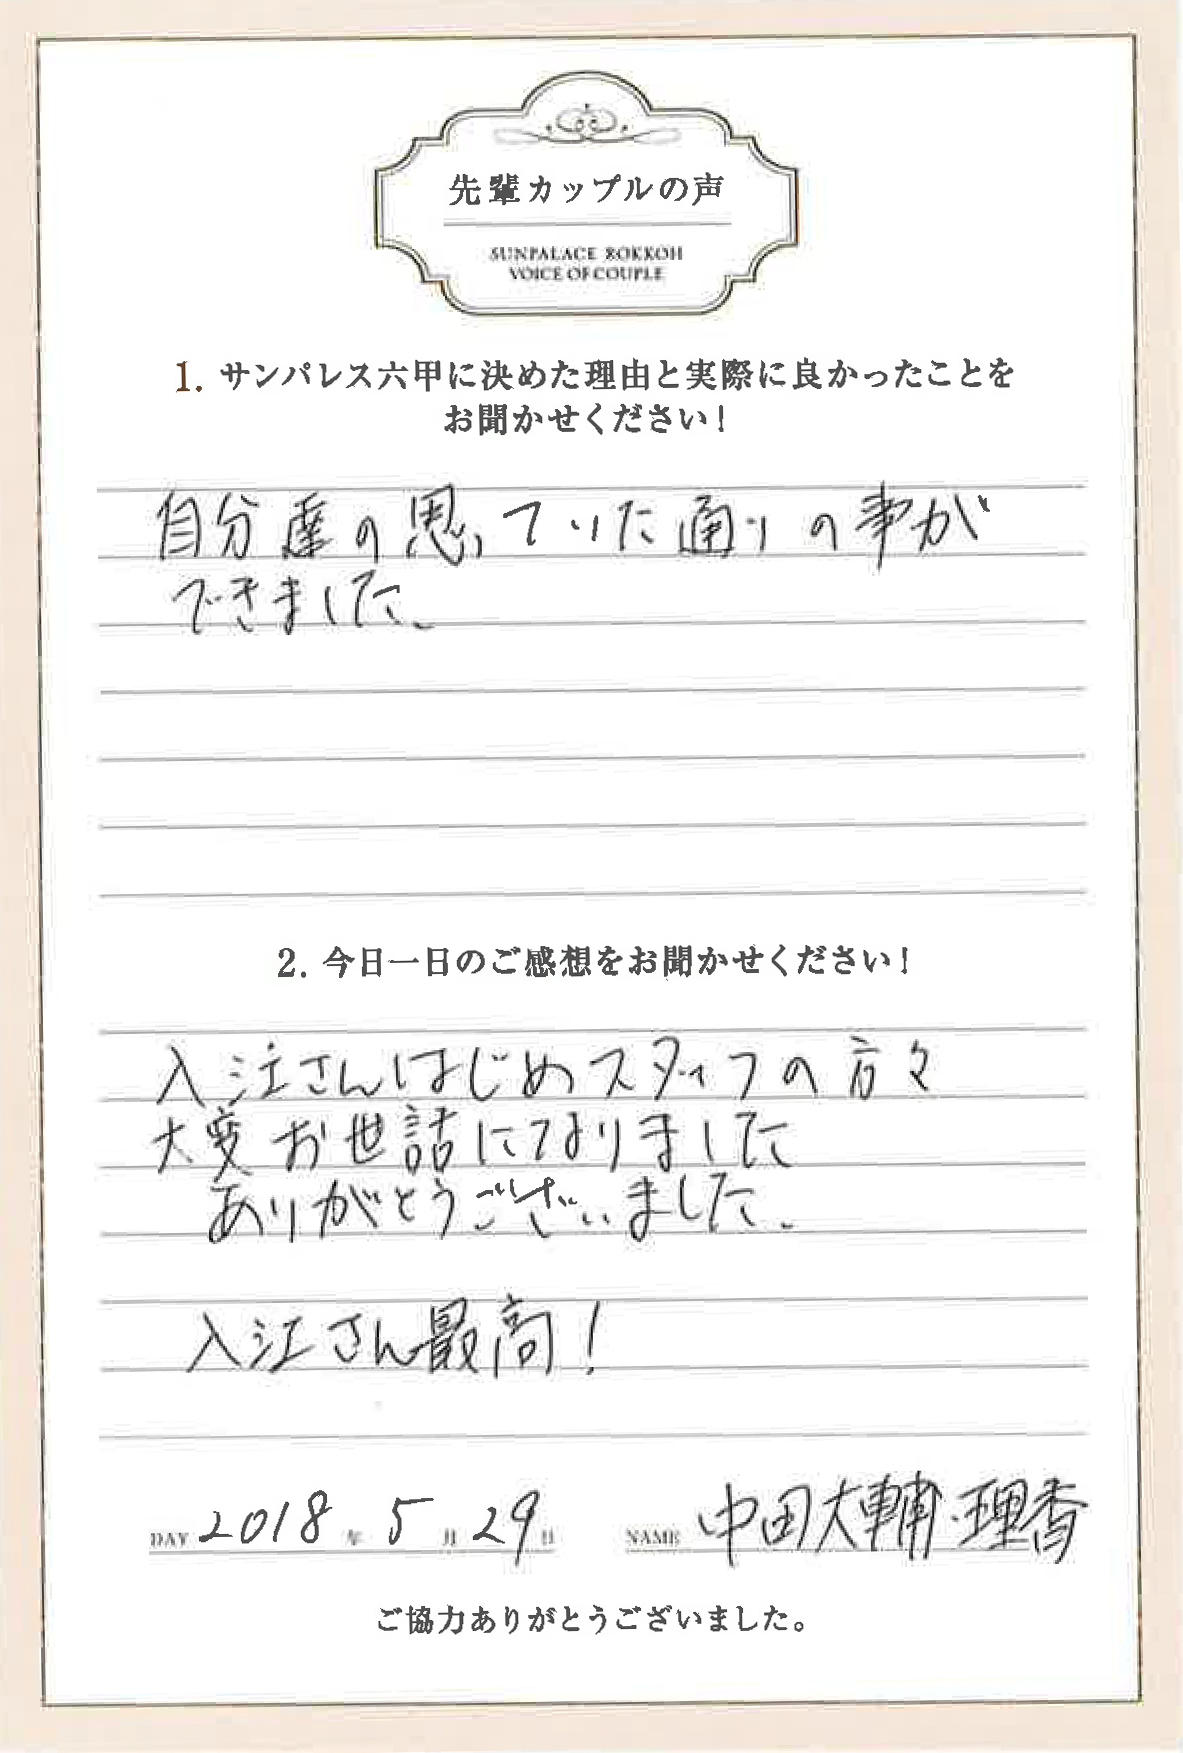 先輩カップルの声
SUNPALACE ROKKOH
VOICE OF COUPLE
1. サンパレス六甲に決めた理由と実際に良かったことを
お聞かせください!
自分達の思っていた通りの事が
できました。
2. 今日一日のご感想をお聞かせください!
入江さんはじめスタッフの方々
大変お世話になりました
ありがとうございました。
入江さん最高!
DAY 2018 年 5 月 29 日 NAME 中田大輔・理香
ご協力ありがとうございました。